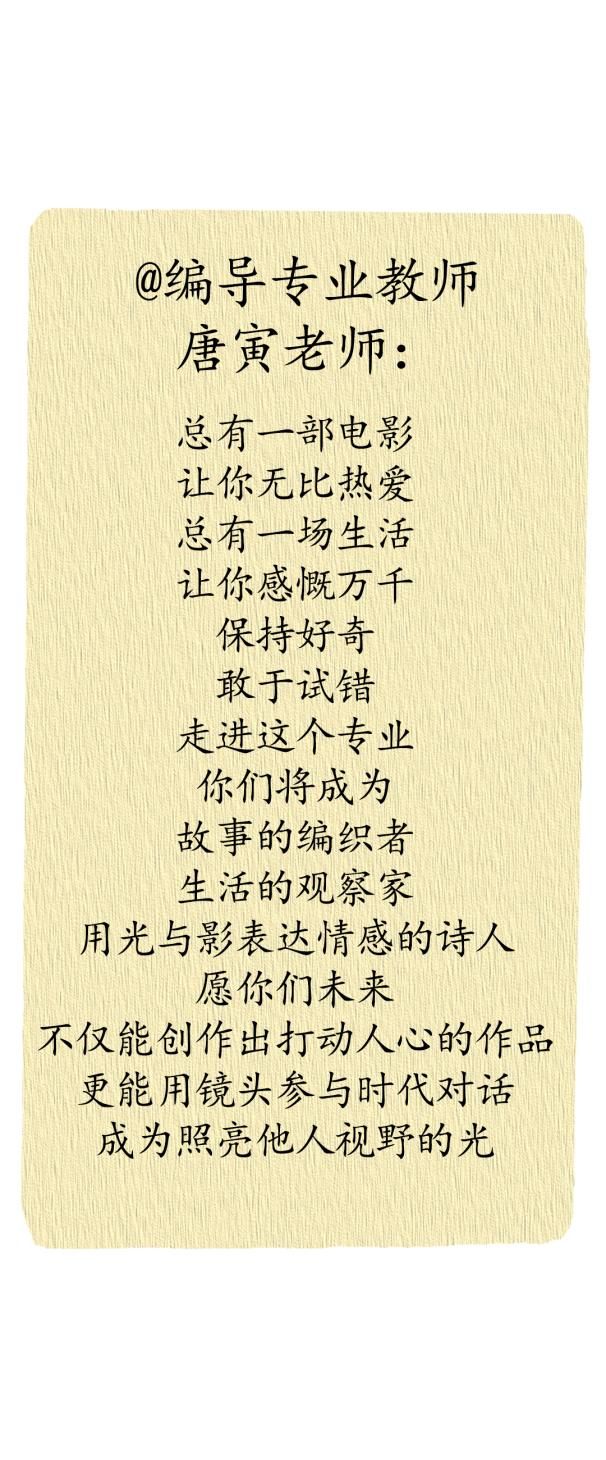 @编导专业教师
唐寅老师：
总有一部电影
让你无比热爱
总有一场生活
让你感慨万千
保持好奇
敢于试错
走进这个专业
你们将成为
故事的编织者
生活的观察家
用光与影表达情感的诗人
愿你们未来
不仅能创作出打动人心的作品
更能用镜头参与时代对话
成为照亮他人视野的光